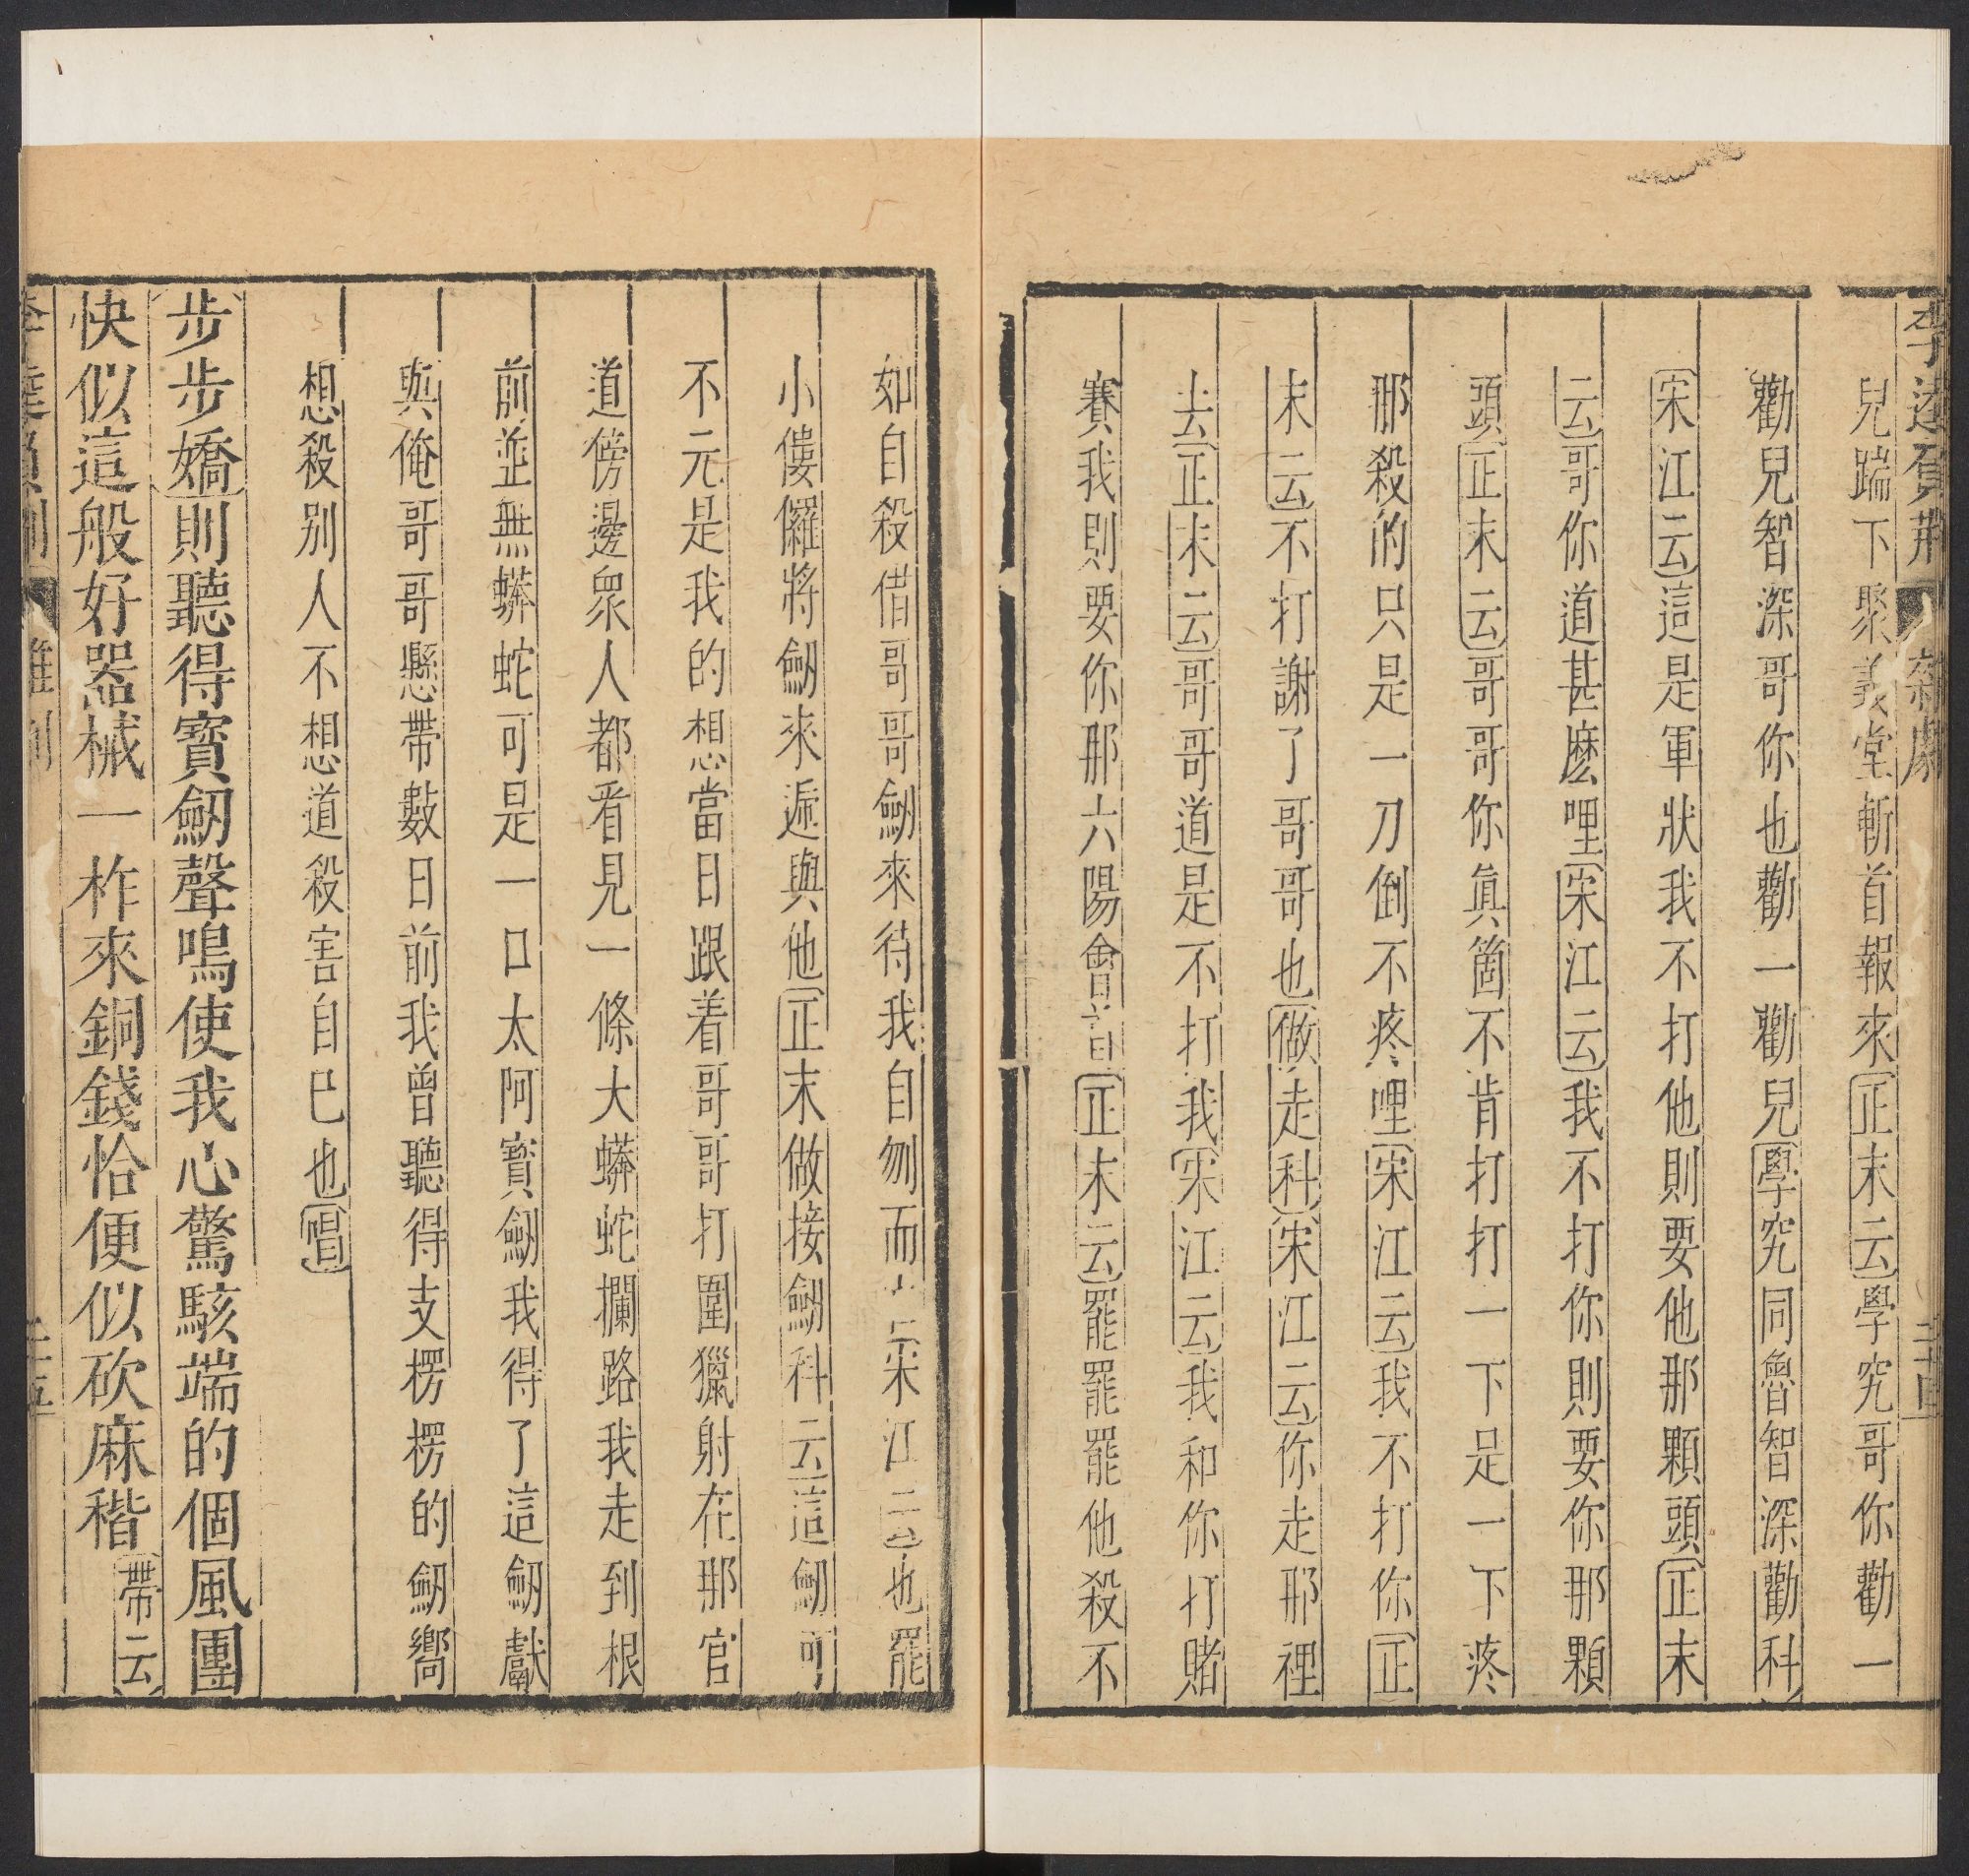 李逵負荊 雜劇 二十四
兒踹下聚義堂斬首報來正末云學究哥你勸一
勸兒智深哥你也勸一勸兒學究同魯智深勸科
宋江云這是軍狀我不打他則要他那顆頭正末
云哥你道甚麽哩宋江云我不打你則要你那顆
頭正末云哥哥你眞箇不肯打打一下是一下疼
那殺的只是一刀倒不疼哩宋江云我不打你正
末云不打謝了哥哥也做走科宋江云你走那裡
去正末云哥哥道是不打我宋江云我和你打賭
賽我則要你那六陽會首正末云罷罷罷他殺不
如自殺借哥哥劒來待我自刎而宋江云也罷
小僂儸將劒來遞與他正末做接劒科云這劒可
不元是我的想當日跟着哥哥打圍獵射在那官
道傍邊衆人都看見一條大蟒蛇攔路我走到根
前並無蟒蛇可是一口太阿寳劒我得了這劒獻
與俺哥哥懸帶數日前我曾聽得支楞楞的劒嚮
想殺别人不想道殺害自巳也唱
步步嬌則聽得寳劒聲鳴使我心驚駭端的個風團
快似這般好器械一柞來銅錢恰便似砍麻稭帶云